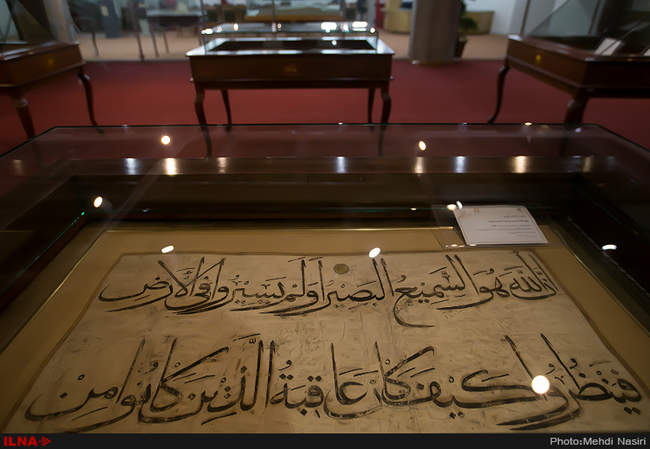 اِنَّ اللّٰهَ هُوَ السَّمِيعُ البَصِيرُ اَوَلَمْ يَسِيرُوا فِي الْاَرْضِ
فَيَنْظُرُوا كَيْفَ كَانَ عَاقِبَةُ الَّذِينَ كَانُوا مِنْ
ILNA
Photo:Mehdi Nasiri